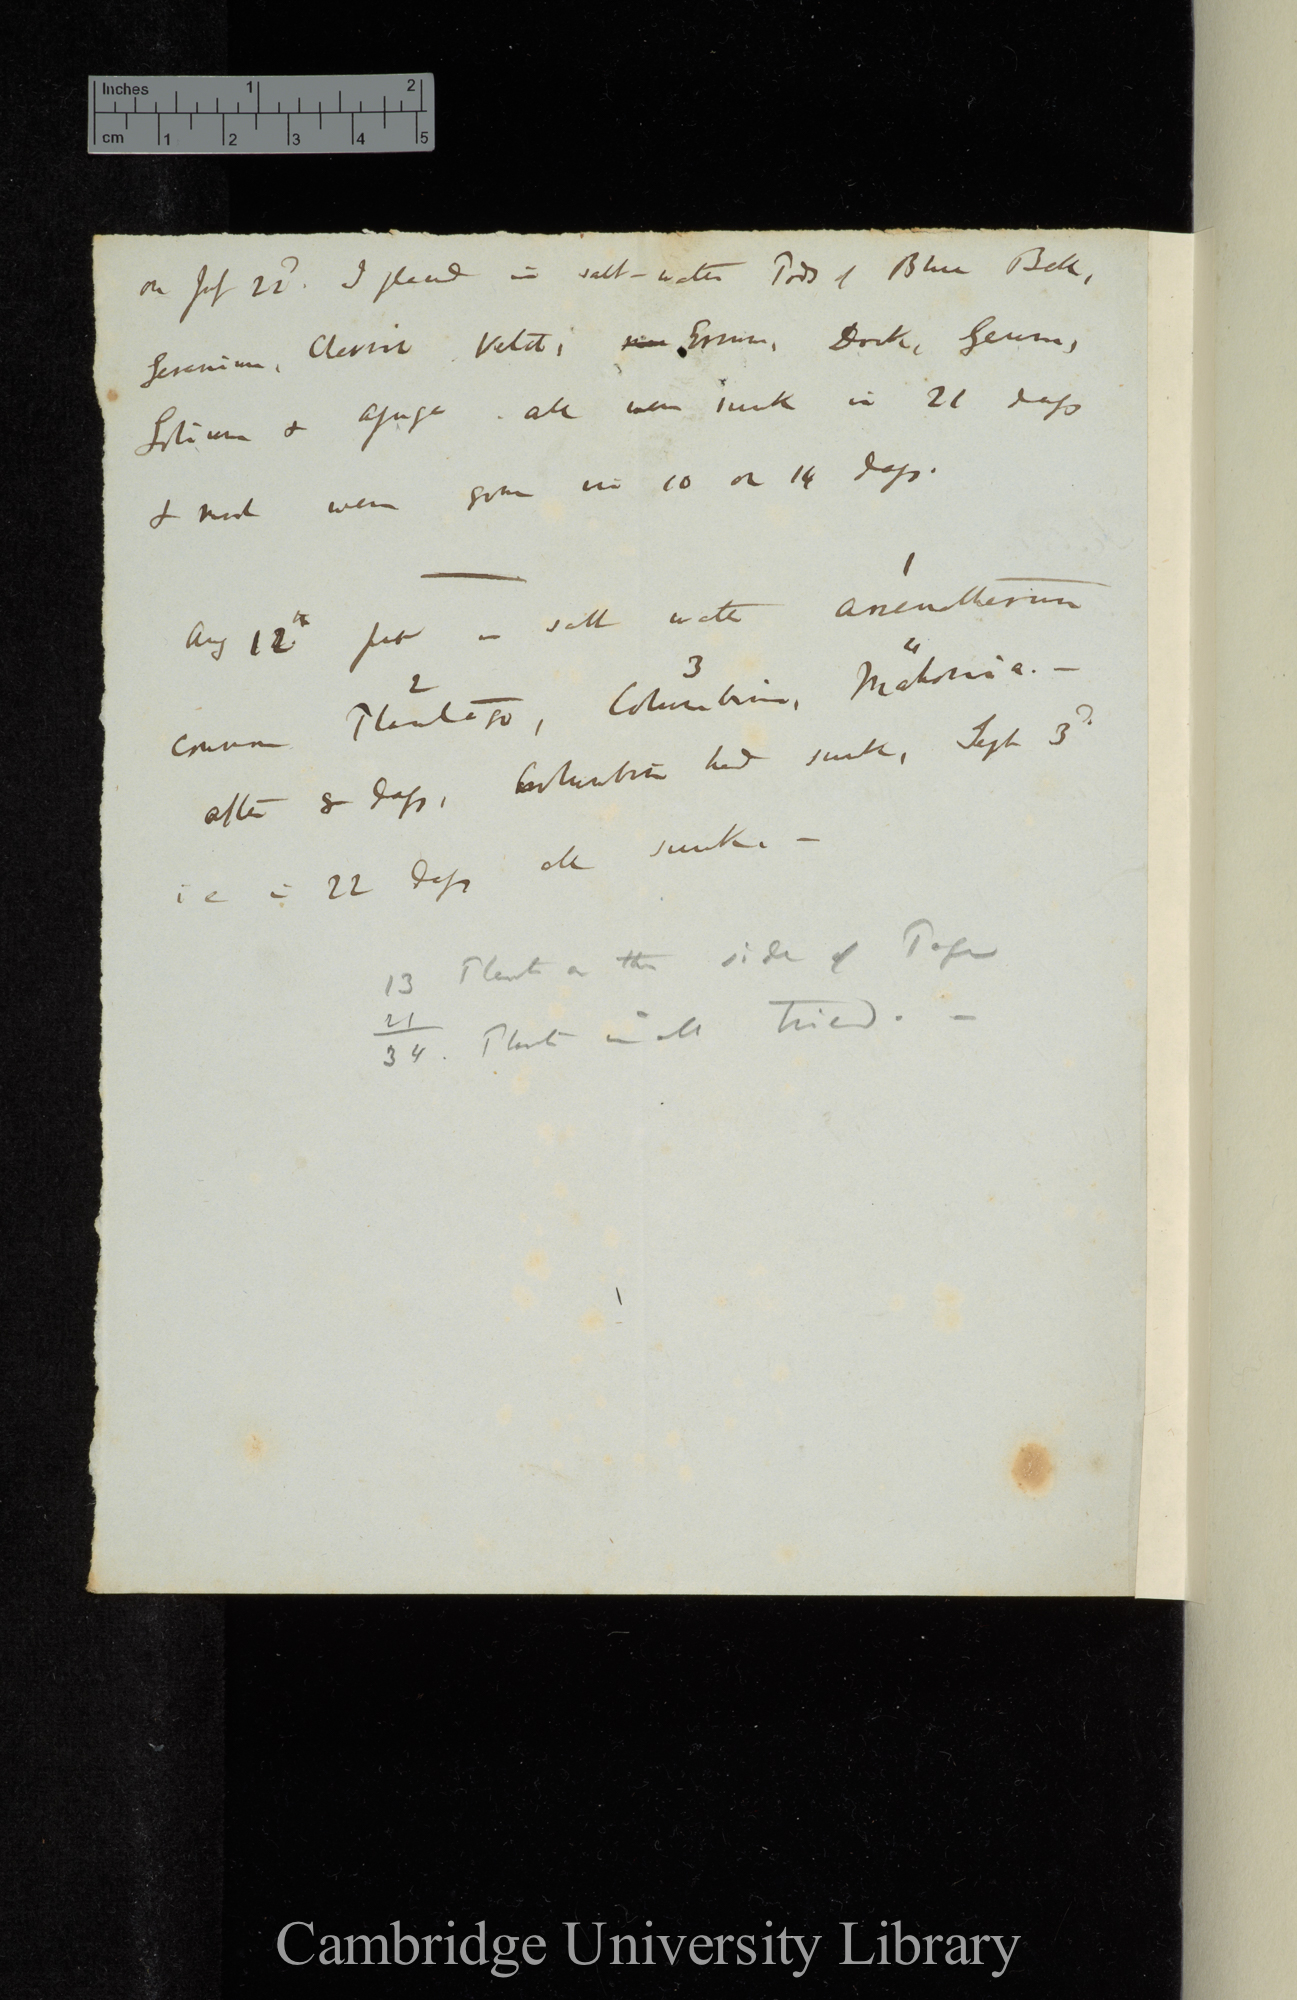 Inches 1 2
cm 1 2 3 4 5
on July 22d. I placed in salt-water Pods of Blue Bell,
Geranium, Clarkia Vetch, Ervum, Dock, Geum,
Lolium & Ajuga. all were sunk in 21 days
& most were gone in 10 or 14 days.
1
Aug 12th put in salt water Arrenatherum
2 3 4
common Plantago, Columbine, Mahonia. —
after 8 days, Columbine had sunk, Sept 3d.
i e in 22 days all sunk. —
13 Plants on the side of Paper
21
34. Plants in all tried. —
Cambridge University Library